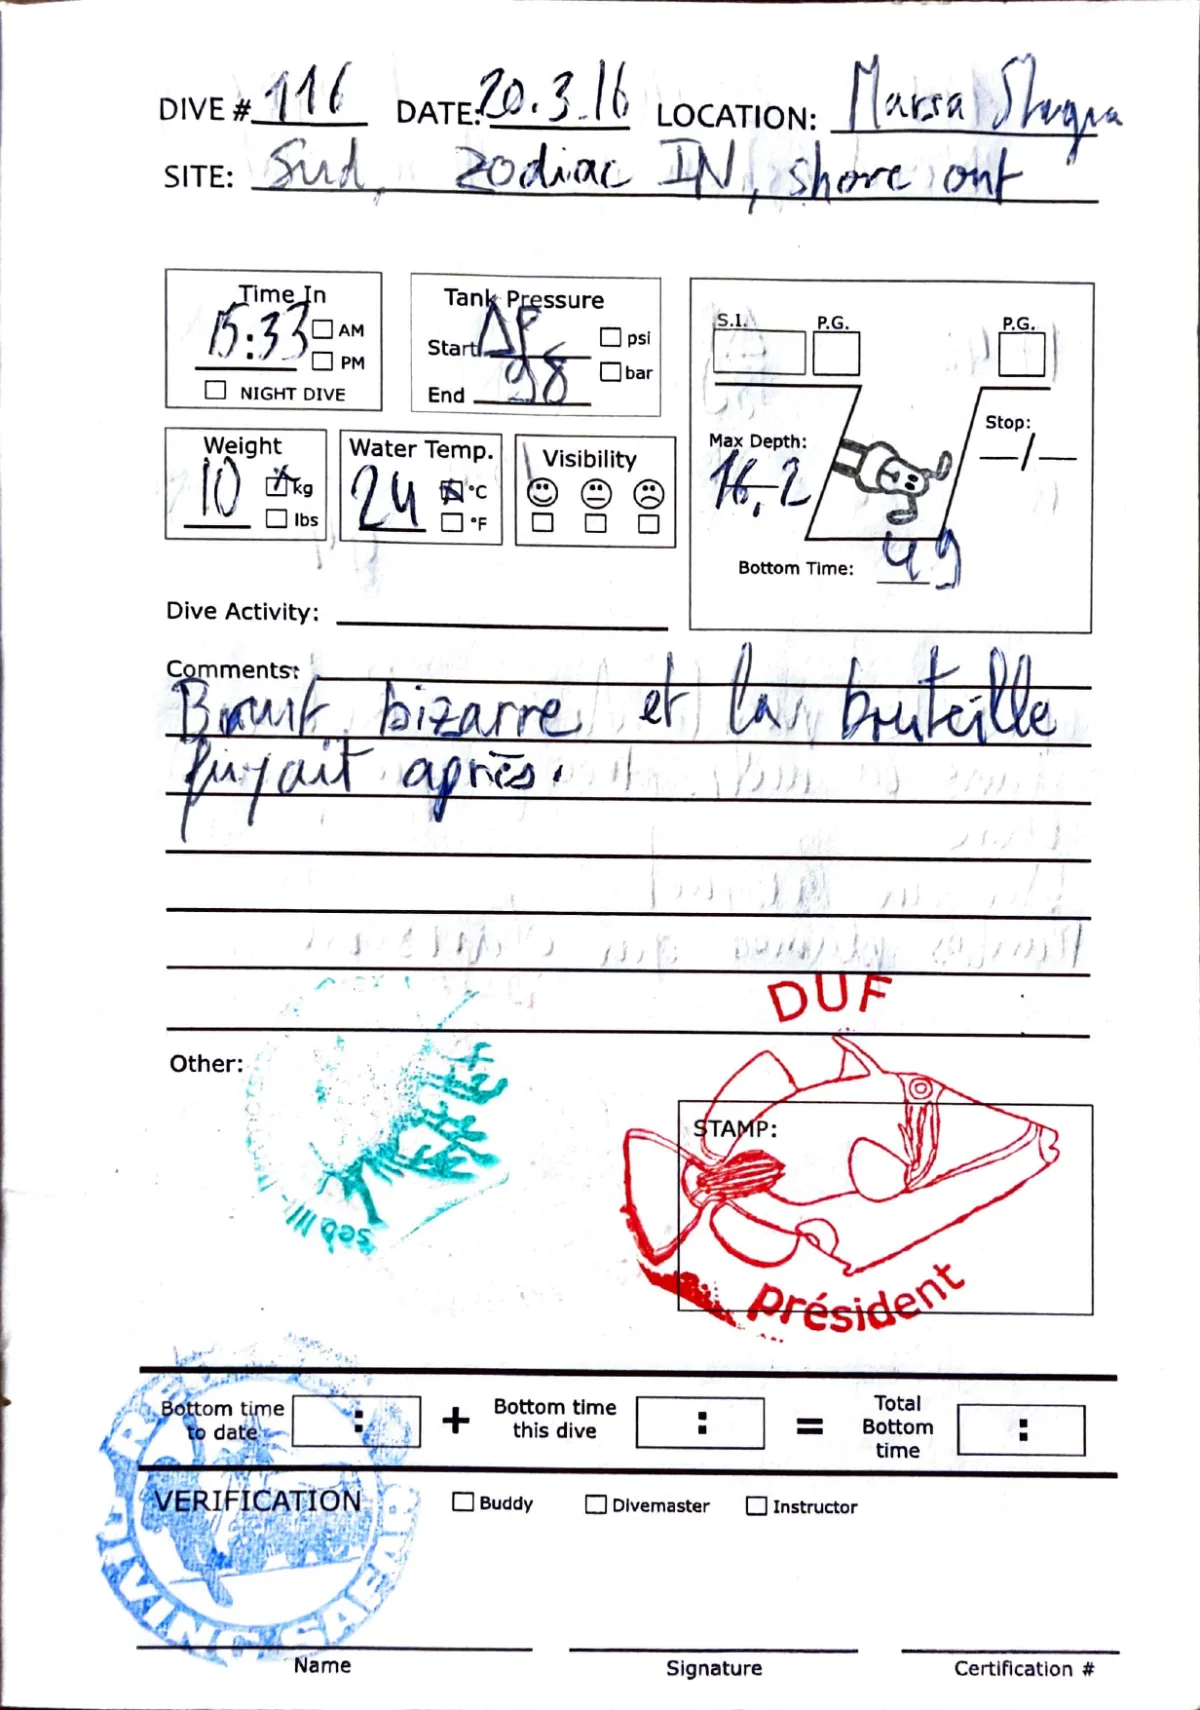 DIVE # 116 DATE: 20.3.16 LOCATION: Marsa Shagra
SITE: Sud, zodiac IN, shore out
Time In
15:33 AM
PM
NIGHT DIVE
Tank Pressure
Start ΔP psi
End 98 bar
S.I. P.G. P.G.
Max Depth:
16,2
Stop:
/
Bottom Time: 49
Weight
10 kg
lbs
Water Temp.
24 °C
°F
Visibility
Dive Activity:
Comments:
Bruit bizarre et la bouteille
fuyait après.
Other:
seb III
DUF
STAMP:
président
Bottom time to date : + Bottom time this dive : = Total Bottom time :
VERIFICATION Buddy Divemaster Instructor
DIVING SAFARI
Name Signature Certification #